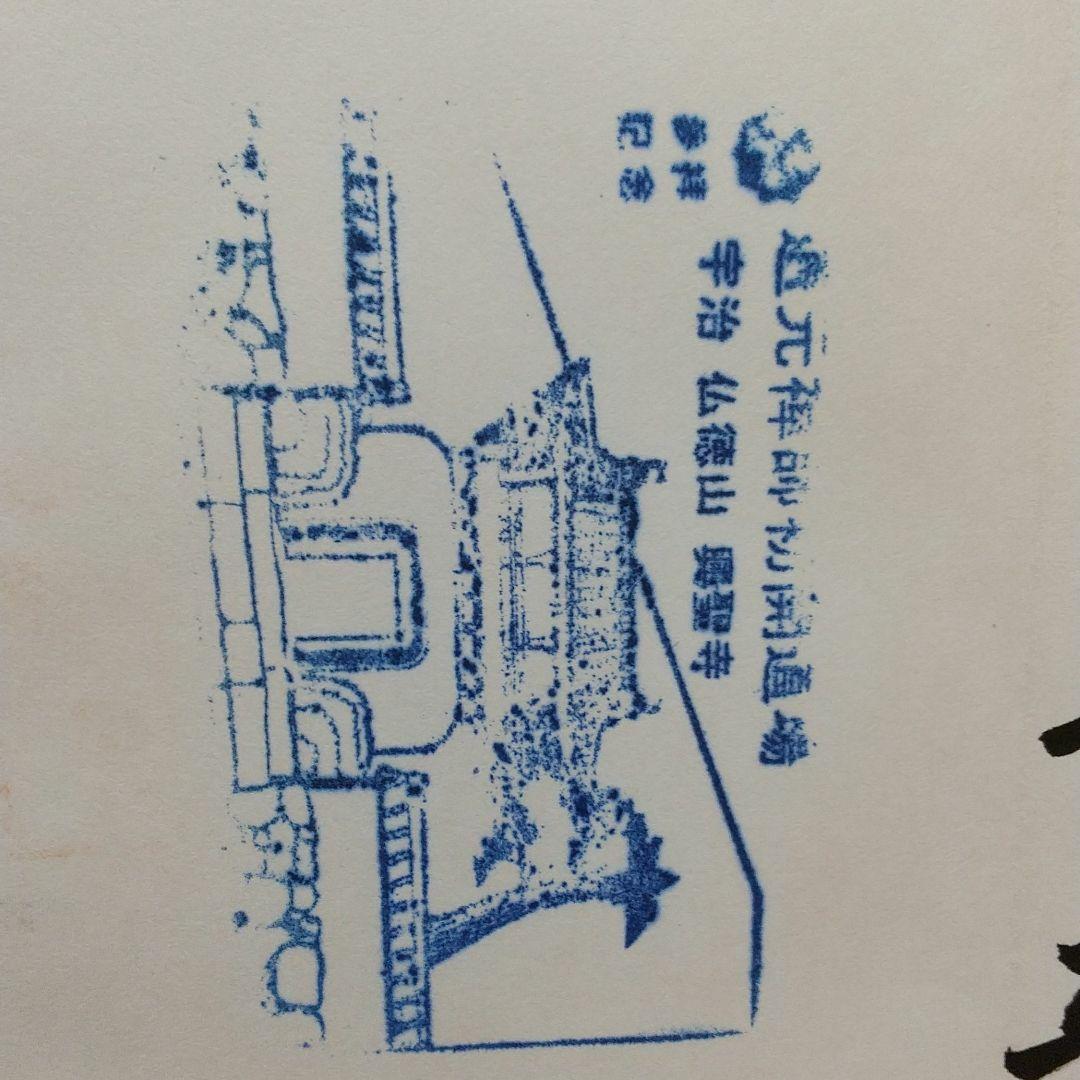 道元禅師初開道場
宇治 仏徳山 興聖寺
参拝
記念